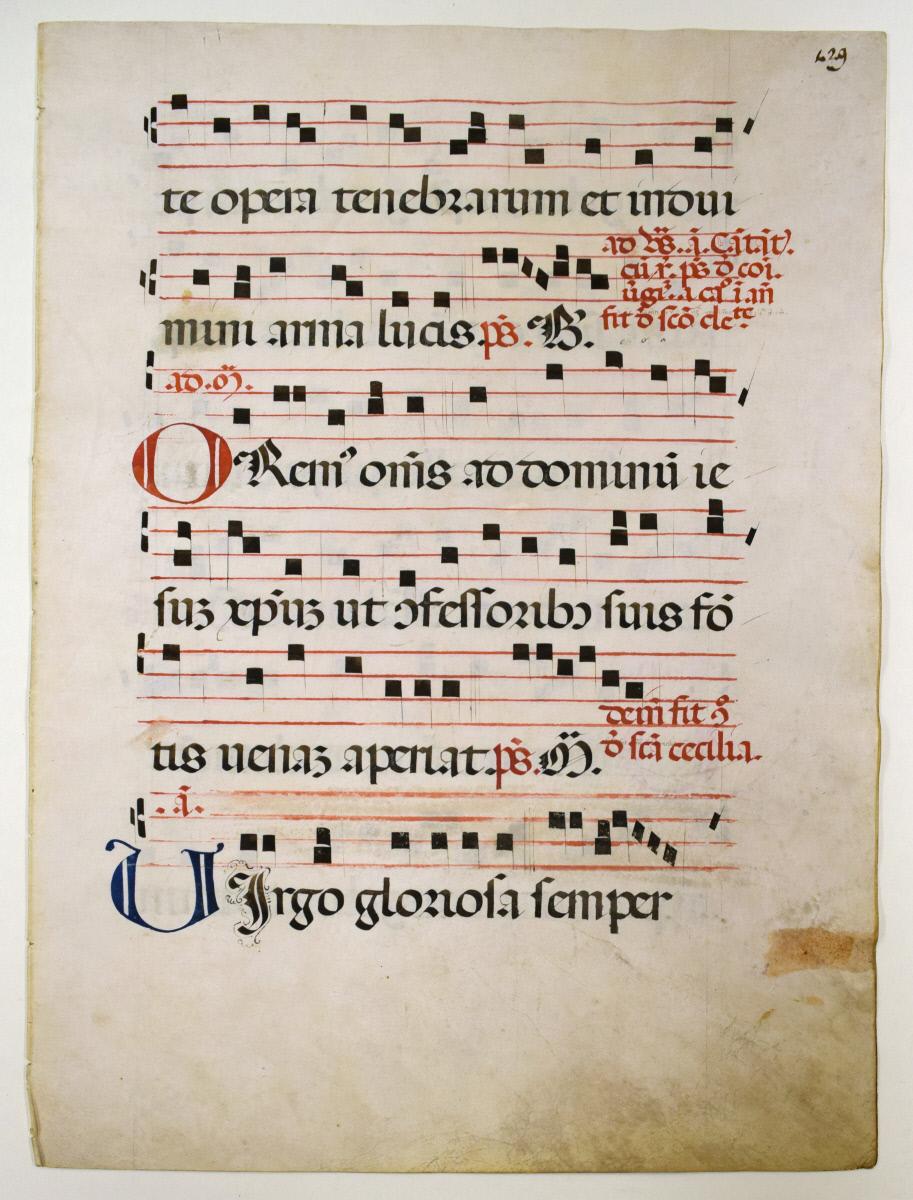 429
te opera tenebrarum et indui
ad Vs. a. Cantāt.
cū r. ps d̄ coi.
uḡi
fit d̄ scō clete
mini arma lucis ps. B.
ad. M.
ORem' om̄s ad dominū ie
suȝ xp̄uȝ ut ↄfessoribↄ suis fō
tis uenaȝ aperiat ps. M.
dem̄ fit 9
d̄ scā cecilia.
a.
UIrgo gloriosa semper